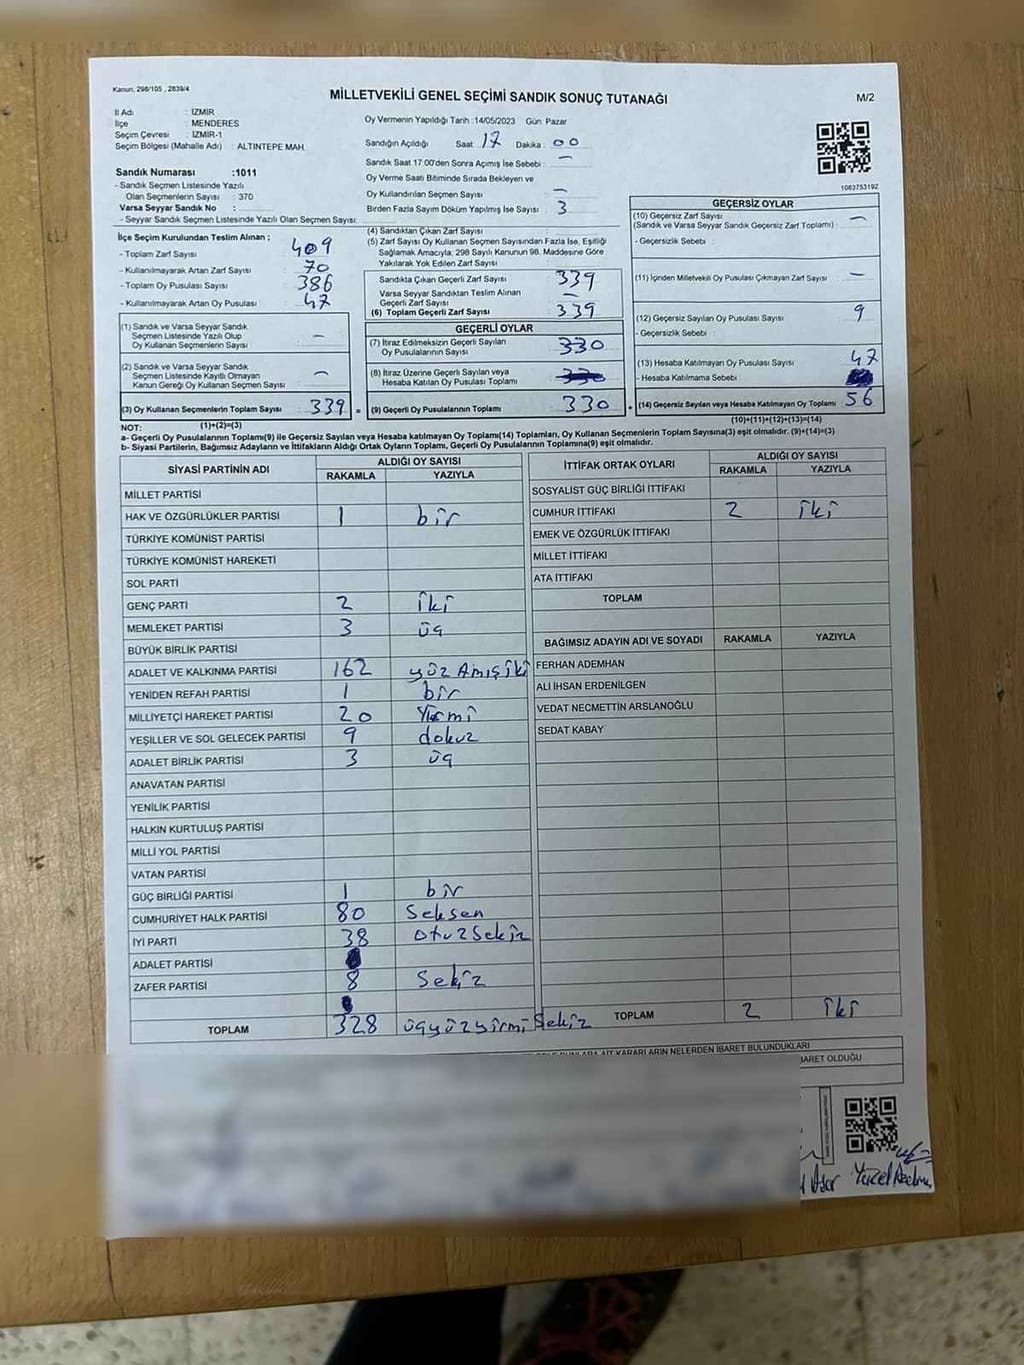 Kanun, 298/105 , 2839/4
MİLLETVEKİLİ GENEL SEÇİMİ SANDIK SONUÇ TUTANAĞI
M/2
İl Adı : İZMİR
İlçe : MENDERES
Seçim Çevresi : İZMİR-1
Seçim Bölgesi (Mahalle Adı) : ALTINTEPE MAH.
Sandık Numarası :1011
- Sandık Seçmen Listesinde Yazılı
Olan Seçmenlerin Sayısı : 370
Varsa Seyyar Sandık No :
- Seyyar Sandık Seçmen Listesinde Yazılı Olan Seçmen Sayısı:
Oy Vermenin Yapıldığı Tarih :14/05/2023 Gün: Pazar
Sandığın Açıldığı Saat 17 Dakika : 00
Sandık Saat 17.00'den Sonra Açımış İse Sebebi : —
Oy Verme Saati Bitiminde Sırada Bekleyen ve
Oy Kullandırılan Seçmen Sayısı : —
Birden Fazla Sayım Döküm Yapılmış İse Sayısı : 3
1083753192
İlçe Seçim Kurulundan Teslim Alınan ;
- Toplam Zarf Sayısı : 409
- Kullanılmayarak Artan Zarf Sayısı : 70
- Toplam Oy Pusulası Sayısı : 386
- Kullanılmayarak Artan Oy Pusulası : 47
(1) Sandık ve Varsa Seyyar Sandık
Seçmen Listesinde Yazılı Olup
Oy Kullanan Seçmenlerin Sayısı : —
(2) Sandık ve Varsa Seyyar Sandık
Seçmen Listesinde Kayıtlı Olmayan
Kanun Gereği Oy Kullanan Seçmen Sayısı : —
(3) Oy Kullanan Seçmenlerin Toplam Sayısı : 339
(1)+(2)=(3)
(4) Sandıktan Çıkan Zarf Sayısı :
(5) Zarf Sayısı Oy Kullanan Seçmen Sayısından Fazla İse, Eşitliği
Sağlamak Amacıyla; 298 Sayılı Kanunun 98. Maddesine Göre
Yakılarak Yok Edilen Zarf Sayısı :
Sandıkta Çıkan Geçerli Zarf Sayısı : 339
Varsa Seyyar Sandıktan Teslim Alınan
Geçerli Zarf Sayısı : —
(6) Toplam Geçerli Zarf Sayısı : 339
GEÇERLİ OYLAR
(7) İtiraz Edilmeksizin Geçerli Sayılan
Oy Pusulalarının Sayısı : 330
(8) İtiraz Üzerine Geçerli Sayılan veya
Hesaba Katılan Oy Pusulası Toplamı :
= (9) Geçerli Oy Pusulalarının Toplamı : 330
GEÇERSİZ OYLAR
(10) Geçersiz Zarf Sayısı : —
(Sandık ve Varsa Seyyar Sandık Geçersiz Zarf Toplamı) :
- Geçersizlik Sebebi :
(11) İçinden Milletvekili Oy Pusulası Çıkmayan Zarf Sayısı : —
(12) Geçersiz Sayılan Oy Pusulası Sayısı : 9
- Geçersizlik Sebebi :
(13) Hesaba Katılmayan Oy Pusulası Sayısı : 47
- Hesaba Katılmama Sebebi :
+ (14) Geçersiz Sayılan veya Hesaba Katılmayan Oy Toplamı : 56
(10)+(11)+(12)+(13)=(14)
NOT:
a- Geçerli Oy Pusulalarının Toplamı(9) ile Geçersiz Sayılan veya Hesaba katılmayan Oy Toplamı(14) Toplamları, Oy Kullanan Seçmenlerin Toplam Sayısına(3) eşit olmalıdır. (9)+(14)=(3)
b- Siyasi Partilerin, Bağımsız Adayların ve İttifakların Aldığı Ortak Oyların Toplamı, Geçerli Oy Pusulalarının Toplamına(9) eşit olmalıdır.
SİYASİ PARTİNİN ADI ALDIĞI OY SAYISI
RAKAMLA YAZIYLA
MİLLET PARTİSİ
HAK VE ÖZGÜRLÜKLER PARTİSİ 1 bir
TÜRKİYE KOMÜNİST PARTİSİ
TÜRKİYE KOMÜNİST HAREKETİ
SOL PARTİ
GENÇ PARTİ 2 iki
MEMLEKET PARTİSİ 3 üç
BÜYÜK BİRLİK PARTİSİ
ADALET VE KALKINMA PARTİSİ 162 yüz Amışiki
YENİDEN REFAH PARTİSİ 1 bir
MİLLİYETÇİ HAREKET PARTİSİ 20 Yirmi
YEŞİLLER VE SOL GELECEK PARTİSİ 9 dokuz
ADALET BİRLİK PARTİSİ 3 üç
ANAVATAN PARTİSİ
YENİLİK PARTİSİ
HALKIN KURTULUŞ PARTİSİ
MİLLİ YOL PARTİSİ
VATAN PARTİSİ
GÜÇ BİRLİĞİ PARTİSİ 1 bir
CUMHURİYET HALK PARTİSİ 80 Seksen
İYİ PARTİ 38 otuzsekiz
ADALET PARTİSİ
ZAFER PARTİSİ 8 Sekiz
TOPLAM 328 üçyüzyirmi Sekiz
İTTİFAK ORTAK OYLARI ALDIĞI OY SAYISI
RAKAMLA YAZIYLA
SOSYALİST GÜÇ BİRLİĞİ İTTİFAKI
CUMHUR İTTİFAKI 2 iki
EMEK VE ÖZGÜRLÜK İTTİFAKI
MİLLET İTTİFAKI
ATA İTTİFAKI
TOPLAM
BAĞIMSIZ ADAYIN ADI VE SOYADI RAKAMLA YAZIYLA
FERHAN ADEMHAN
ALİ İHSAN ERDENİLGEN
VEDAT NECMETTİN ARSLANOĞLU
SEDAT KABAY
TOPLAM 2 iki
KARARLARIN NELERDEN İBARET BULUNDUKLARI
İBARET OLDUĞU